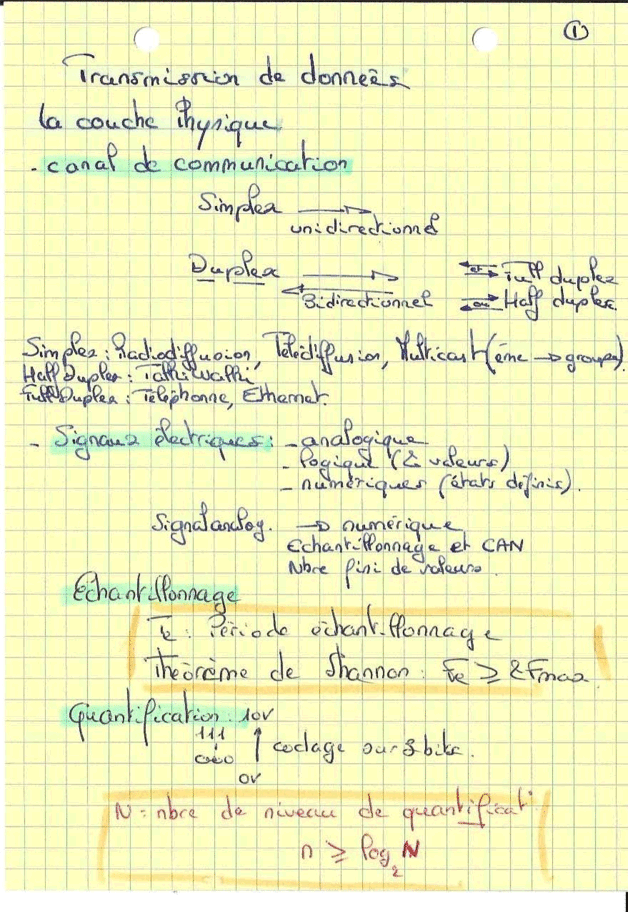 ①
Transmission de données
la couche Physique
- canal de communication
Simplex →
unidirectionnel
Duplex → ← et Full duplex
Bidirectionnel ou Half duplex.
Simplex : Radiodiffusion, Télédiffusion, Multicast (éme → groupes).
Half Duplex : Talhi Walhi
Full Duplex : Téléphonne, Ethernet.
- Signaux électriques : - analogique
- logique (2 valeurs)
- numériques (états définis).
Signal analog. → numérique
Echantillonnage et CAN
Nbre fini de valeurs.
Echantillonnage
Te : Période échantillonnage
Théorème de Shannon : Fe ≥ 2Fmax
Quantification : 10V
111
000 ↑ codage sur 3 bits.
0V
N = nbre de niveau de quantificat°
n ≥ log₂ N